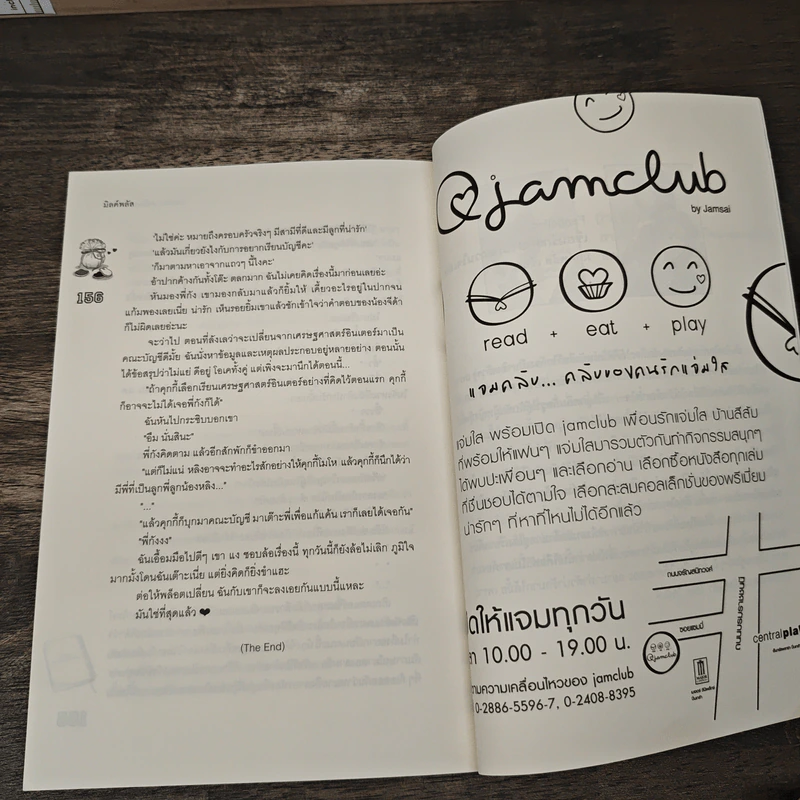 มิลค์พลัส
'ไม่ใช่ค่ะ หมายถึงครอบครัวจริงๆ มีสามีที่ดีและมีลูกที่น่ารัก'
'แล้วมันเกี่ยวยังไงกับการอยากเรียนบัญชีคะ'
'ก็มาตามหาเอาจากแถวๆ นี้ไงคะ'
อ้าปากค้างกันทั้งโต๊ะ ตลกมาก ฉันไม่เคยคิดเรื่องนี้มาก่อนเลยอ่ะ
หันมองพี่กัง เขามองกลับมาแล้วก็ยิ้มให้ เคี้ยวอะไรอยู่ในปากจน
แก้มพองเลยเนี่ย น่ารัก เห็นรอยยิ้มเขาแล้วชักเข้าใจว่าคำตอบของน้องจีด้า
ก็ไม่ผิดเลยอ่ะนะ
156
จะว่าไป ตอนที่ลังเลว่าจะเปลี่ยนจากเศรษฐศาสตร์อินเตอร์มาเป็น
คณะบัญชีดีมั้ย ฉันนั่งหาข้อมูลและเหตุผลประกอบอยู่หลายอย่าง ตอนนั้น
ได้ข้อสรุปว่าไม่แย่ ดีอยู่ โอเคทั้งคู่ แต่เพิ่งจะมานึกได้ตอนนี้...
"ถ้าคุกกี้เลือกเรียนเศรษฐศาสตร์อินเตอร์อย่างที่คิดไว้ตอนแรก คุกกี้
ก็อาจจะไม่ได้เจอพี่กังก็ได้"
ฉันหันไปกระซิบบอกเขา
"อืม นั่นสินะ"
พี่กังคิดตาม แล้วอีกสักพักก็ขำออกมา
"แต่ก็ไม่แน่ หลิงอาจจะทำอะไรสักอย่างให้คุกกี้โมโห แล้วคุกกี้ก็นึกได้ว่า
มีพี่ที่เป็นลูกพี่ลูกน้องหลิง..."
"..."
"แล้วคุกกี้ก็บุกมาคณะบัญชี มาเต๊าะพี่เพื่อแก้แค้น เราก็เลยได้เจอกัน"
"พี่กังงง"
ฉันเอื้อมมือไปตีๆ เขา แง ชอบล้อเรื่องนี้ ทุกวันนี้ก็ยังล้อไม่เลิก ภูมิใจ
มากมั้งโดนฉันเต๊าะเนี่ย แต่ยิ่งคิดก็ยิ่งขำแฮะ
ต่อให้พล็อตเปลี่ยน ฉันกับเขาก็จะลงเอยกันแบบนี้แหละ
มันใช่ที่สุดแล้ว ❤
(The End)
jamclub
by Jamsai
read + eat + play
แจมคลับ... คลับของคนรักแจ่มใส
แจ่มใส พร้อมเปิด jamclub เพื่อนรักแจ่มใส บ้านสีส้ม
ที่พร้อมให้แฟนๆ แจ่มใสมารวมตัวกันทำกิจกรรมสนุกๆ
ได้พบปะเพื่อนๆ และเลือกอ่าน เลือกซื้อหนังสือทุกเล่ม
ที่ชื่นชอบได้ตามใจ เลือกสะสมคอลเล็กชั่นของพรีเมี่ยม
น่ารักๆ ที่หาที่ไหนไม่ได้อีกแล้ว
ถนนจรัญสนิทวงศ์
ให้แจมทุกวัน
10.00 - 19.00 น.
ซอยแฮมมี่
ถนนบรมราชชนนี
jamclub
ตามความเคลื่อนไหวของ jamclub
0-2886-5596-7, 0-2408-8395